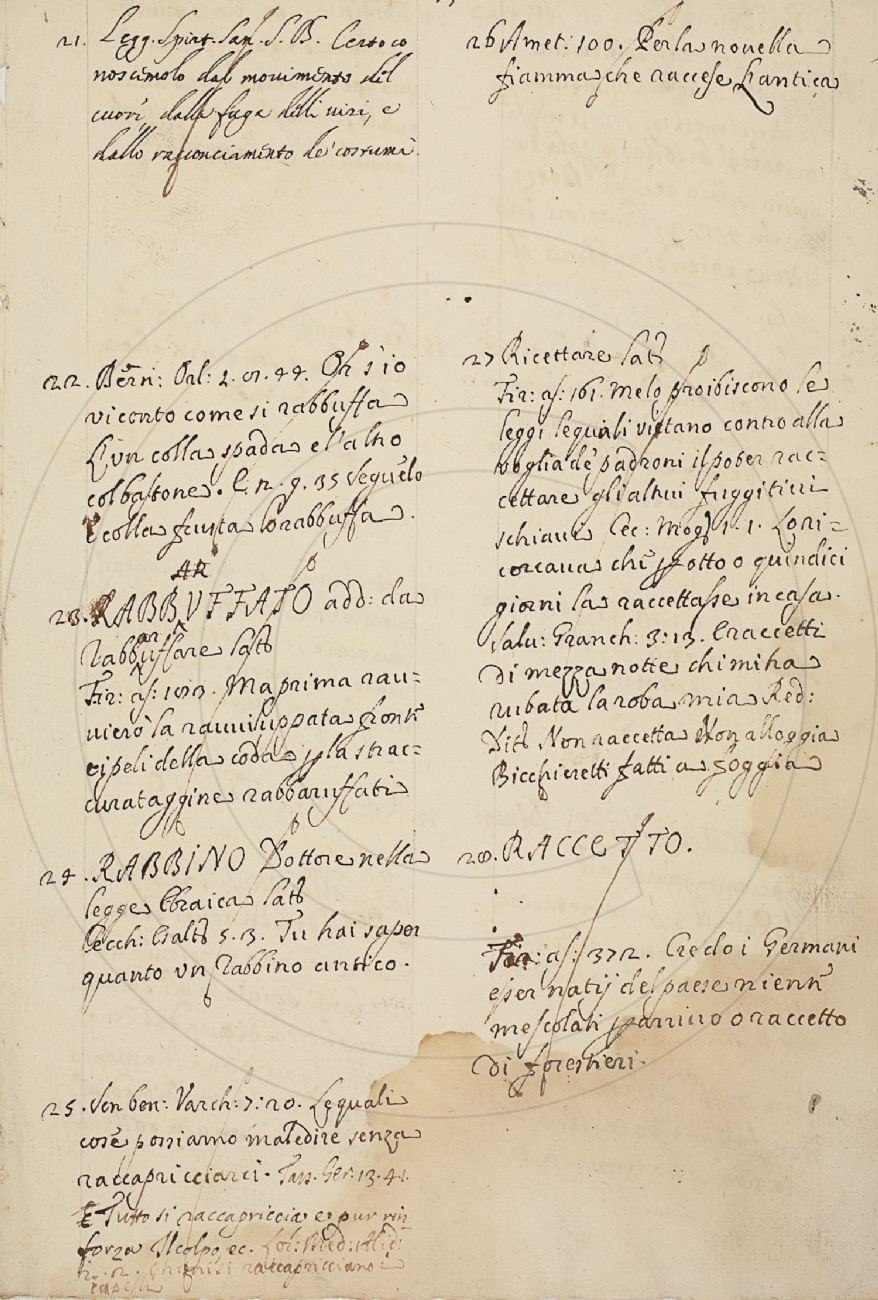 21. Legg. Spirt. San. S. B. Certo co
noscemolo dal movimento del
cuore, dalla fuga delli vizi, e
dallo racconciamento de' costumi.
22. Bern: Orl: 2. 01. 44. Oh s'io
vi conto come si rabbuffa
L'un colla spada e l'altro
col bastone. E n. 9. 35 Seguelo
e colla frusta lo rabbuffa.
AR
23. RABBUFFATO add: da
Rabbuffare
ar
Fir: as: Ma prima rau-
la ravviluppata fronte
e i peli della coda p la strac-
curataggine rabbaruffati
24. RABBINO Dottore nella
legge Ebraica
Cecch: 5. 3. Tu hai saper
quanto un Rabbino antico.
25. Sen ben: Varch: 7: 20. Le quali
cose possiamo maledire senza
raccapricciarci. Tass. Ger: 13. 41.
E Tutto si raccapriccia e pur rin
forza Il colpo, ec.
raccapricciano i
capelli
26 Amet: 100. Per la novella
fiamma che raccese L'antica
27 Ricettare
Fir: as: 161. Melo proibiscono le
leggi le quali vietano contro alla
voglia de' padroni il poter rac-
cettare gli altrui fuggitivi
schiavi Cec: Mog: 1. 1. Lo ri-
cercava che p otto o quindici
giorni la raccettasse in casa.
Salv: Granch: 3: 13. E raccetti
di mezza notte chi mi ha
rubata la roba mia Red:
Dit: Non raccetta Non alloggia
Bicchieretti fatti a foggia
28. RACCETTO.
Fir: as: 372. Credo i Germani
esser natij del paese niente
mescolati p arrivo o raccetto
di forestieri.